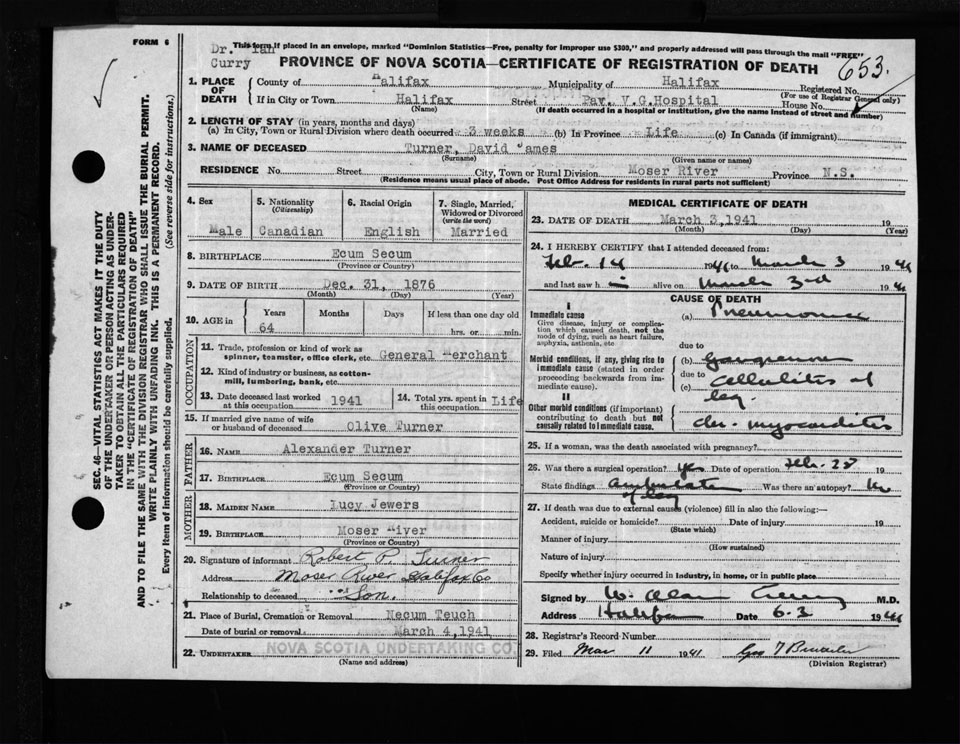 FORM 6
Dr. Ian
Curry
This form if placed in an envelope, marked "Dominion Statistics—Free, penalty for improper use $300," and properly addressed will pass through the mail "FREE"
PROVINCE OF NOVA SCOTIA—CERTIFICATE OF REGISTRATION OF DEATH
653
1. PLACE OF DEATH
County of Halifax Municipality of Halifax Registered No.
(For use of Registrar General only)
If in City or Town Halifax Street Pav. V.G.Hospital House No.
(Name) (If death occurred in a hospital or institution, give the name instead of street and number)
2. LENGTH OF STAY (in years, months and days)
(a) In City, Town or Rural Division where death occurred 3 weeks (b) In Province Life (c) In Canada (if immigrant)
3. NAME OF DECEASED Turner, David James
(Surname) (Given name or names)
RESIDENCE No. Street City, Town or Rural Division Moser River Province N.S.
(Residence means usual place of abode. Post Office Address for residents in rural parts not sufficient)
4. Sex Male
5. Nationality (Citizenship) Canadian
6. Racial Origin English
7. Single, Married, Widowed or Divorced (write the word) Married
8. BIRTHPLACE Ecum Secum
(Province or Country)
9. DATE OF BIRTH Dec. 31, 1876
(Month) (Day) (Year)
10. AGE in Years 64 Months Days If less than one day old
hrs. or min.
OCCUPATION
11. Trade, profession or kind of work as spinner, teamster, office clerk, etc. General Merchant
12. Kind of industry or business, as cotton-mill, lumbering, bank, etc.
13. Date deceased last worked at this occupation 1941
14. Total yrs. spent in this occupation Life
15. If married give name of wife or husband of deceased Olive Turner
FATHER
16. NAME Alexander Turner
17. BIRTHPLACE Ecum Secum
(Province or Country)
MOTHER
18. MAIDEN NAME Lucy Jewers
19. BIRTHPLACE Moser River
(Province or Country)
20. Signature of informant Robert P. Turner
Address Moser River Halifax Co
Relationship to deceased Son.
21. Place of Burial, Cremation or Removal Necum Teuch
Date of burial or removal March 4, 1941
22. UNDERTAKER NOVA SCOTIA UNDERTAKING CO.
(Name and address)
MEDICAL CERTIFICATE OF DEATH
23. DATE OF DEATH March 3,1941 19
(Month) (Day) (Year)
24. I HEREBY CERTIFY that I attended deceased from:
Feb. 14 1941 to March 3 1941
and last saw h im alive on March 3rd 1941
CAUSE OF DEATH
I
Immediate cause
Give disease, injury or complication which caused death, not the mode of dying, such as heart failure, asphyxia, asthenia, etc.
(a) Pneumonia
due to
Morbid conditions, if any, giving rise to immediate cause (stated in order proceeding backwards from immediate cause).
(b) Gangrene
due to
(c) Cellulitis of leg.
II
Other morbid conditions (if important) contributing to death but not causally related to immediate cause.
chr. myocarditis
25. If a woman, was the death associated with pregnancy?
26. Was there a surgical operation? yes Date of operation Feb. 28 19
State findings of leg Was there an autopsy? no
27. If death was due to external causes (violence) fill in also the following:—
Accident, suicide or homicide? Date of injury 19
(State which)
Manner of injury
(How sustained)
Nature of injury
Specify whether injury occurred in industry, in home, or in public place
Signed by W. Alan Curry M.D.
Address Halifax Date 6.3 1941
28. Registrar's Record Number
29. Filed Mar 11 1941
(Division Registrar)
SEC. 46—VITAL STATISTICS ACT MAKES IT THE DUTY
OF THE UNDERTAKER OR PERSON ACTING AS UNDER-
TAKER TO OBTAIN ALL THE PARTICULARS REQUIRED
IN THE "CERTIFICATE OF REGISTRATION OF DEATH"
AND TO FILE THE SAME WITH THE DIVISION REGISTRAR WHO SHALL ISSUE THE BURIAL PERMIT.
WRITE PLAINLY WITH UNFADING INK. THIS IS A PERMANENT RECORD.
Every item of information should be carefully supplied. (See reverse side for instructions.)